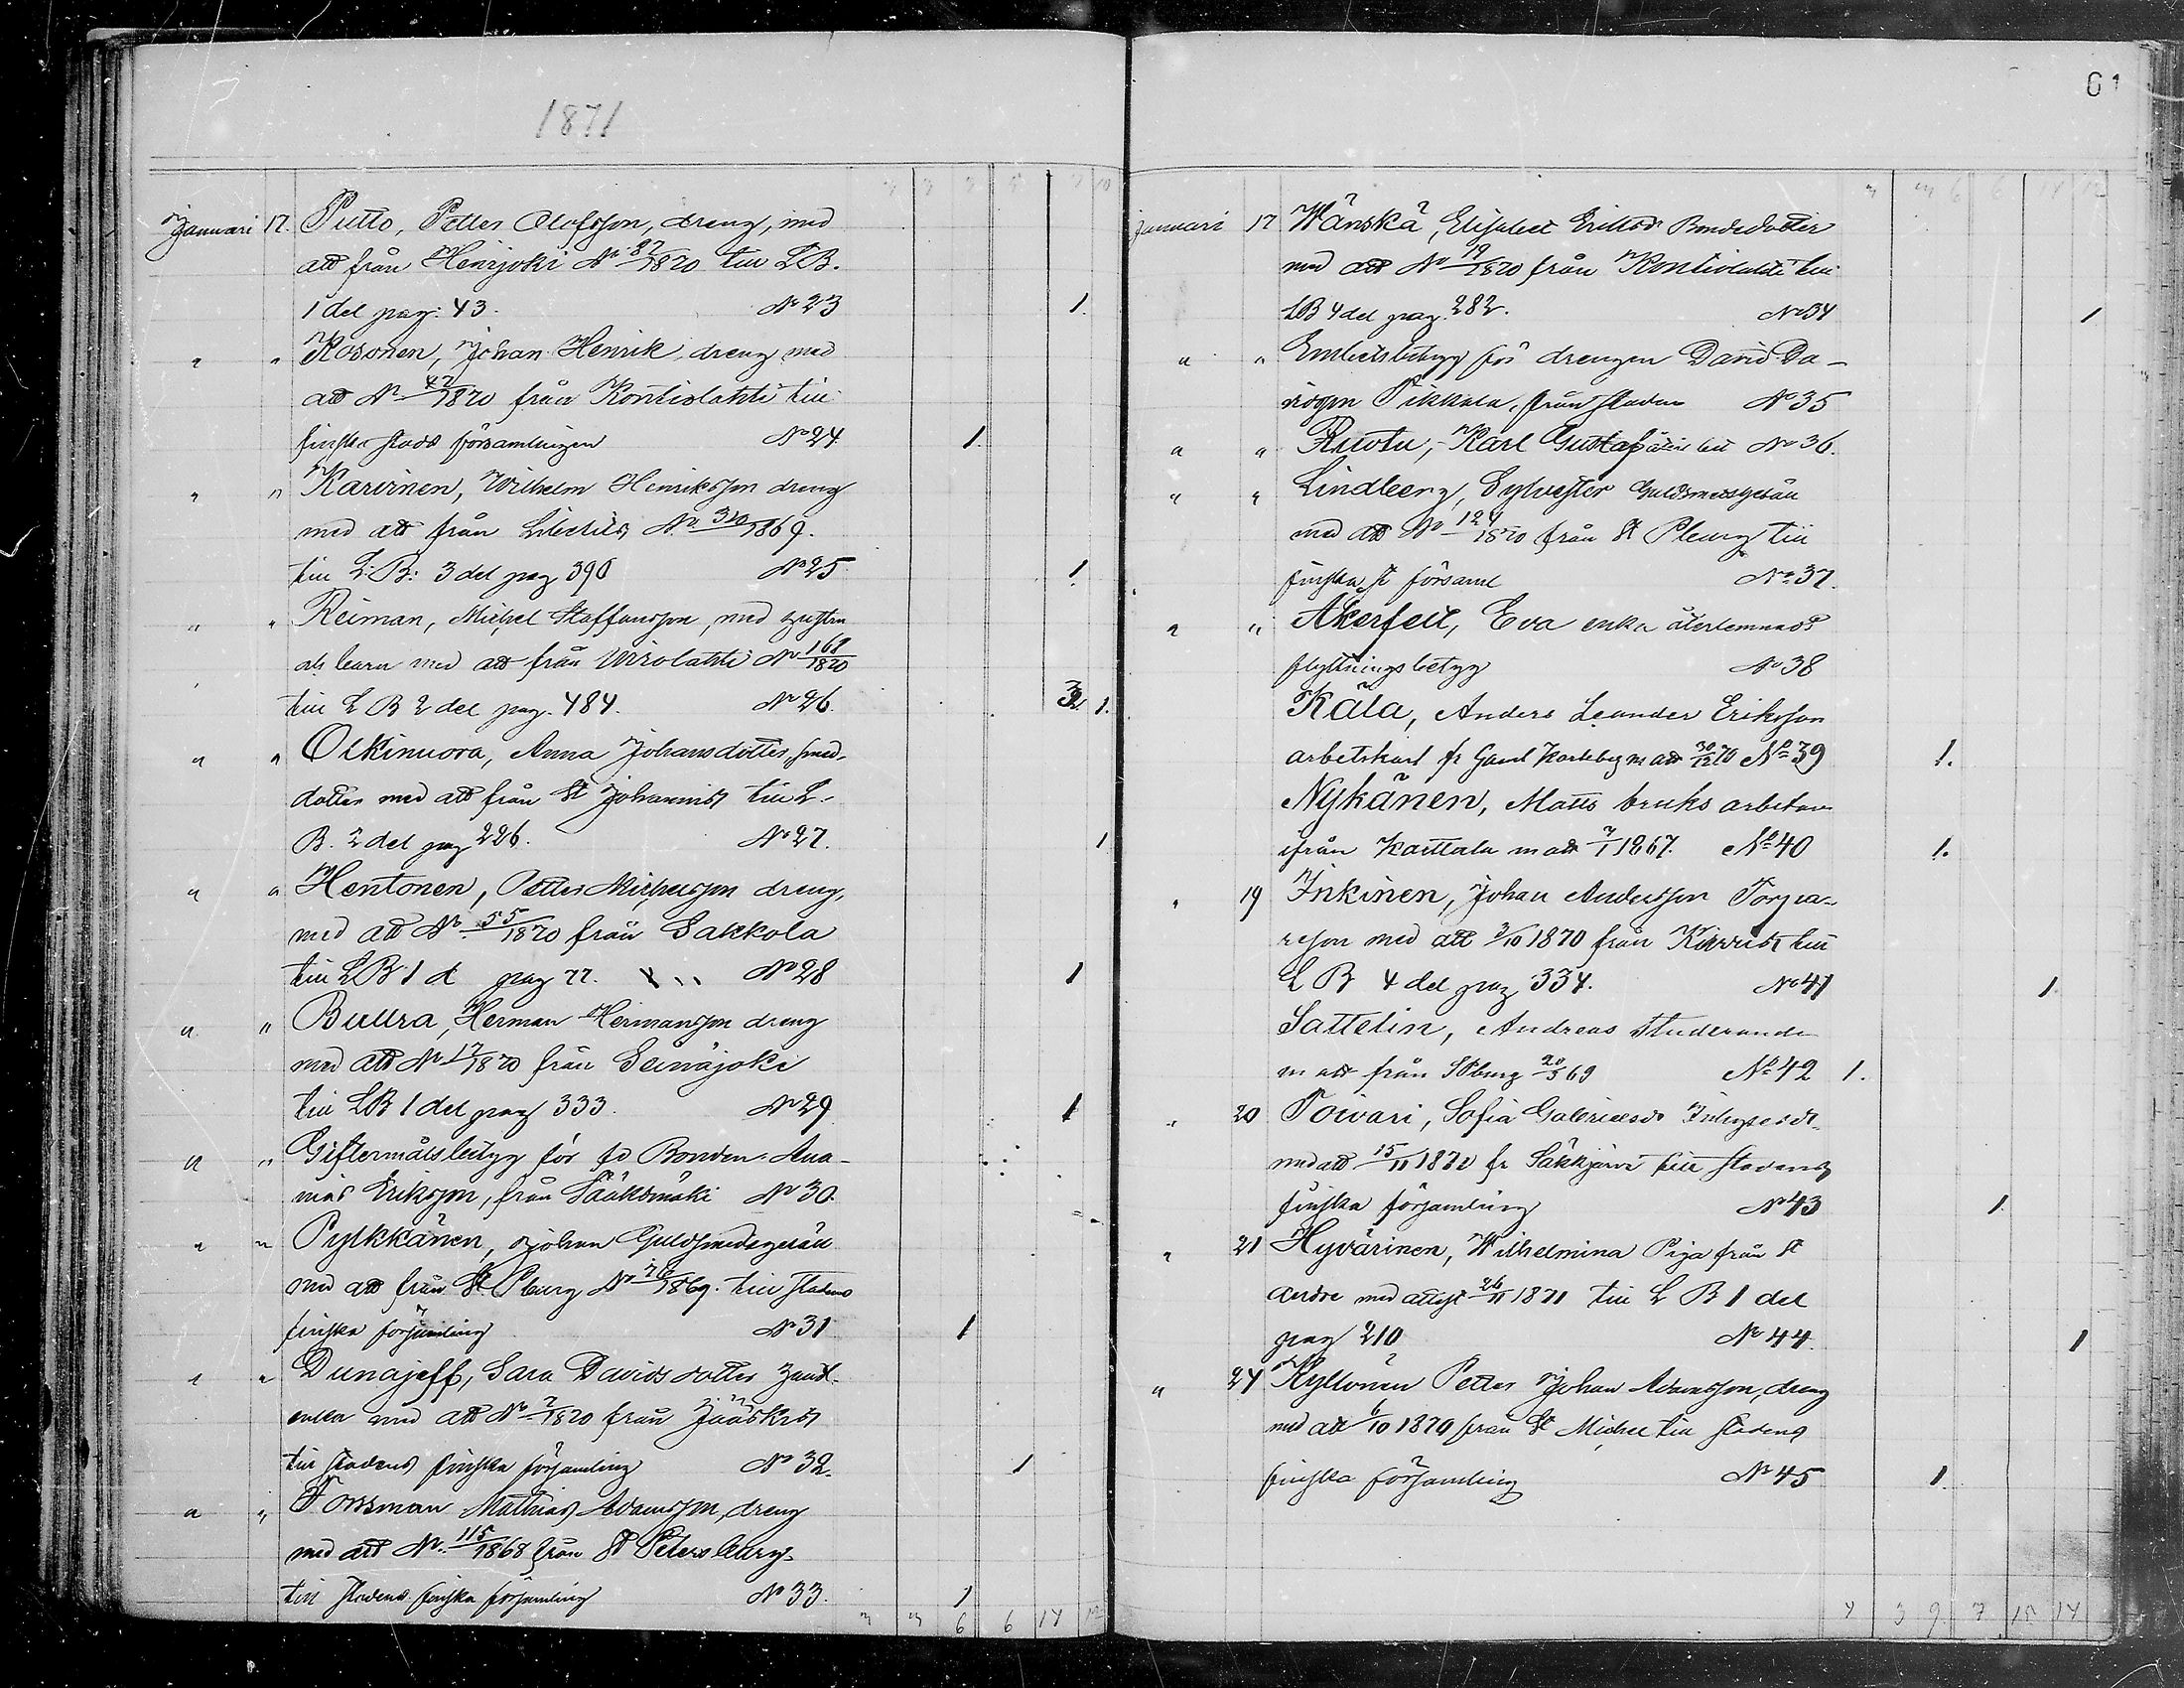 1871
61
Januari 17. Putto, Petter Olofsson, dreng, med
att från Heinjoki No 82/1870 till LB.
1 del pag: 43. No 23 1.
" " Kosonen, Johan Henrik, dreng med
att No 42/1870 från Kontiolahti till
finska stads församlingen No 24 1.
" " Karinen, Wilhelm Henriksson dreng
med att från Libelits No 320/1869.
till L:B: 3 del pag 390 No 25 1.
" " Reiman, Michel Staffansson, med hustru
och barn med att från Wirolahti No 168/1870
till L B 2 del pag. 484. No 26. 1.
" " Olkinuora, Anna Johansdotter, smed-
dotter med att från St Johannis till L.
B. 2 del pag 226. No 27. 1
" " Hentonen, Petter Michelsson dreng,
med att No 55/1870 från Sakkola
till LB 1 d pag 77. No 28 1
" " Bullra, Herman Hermansson dreng
med att No 17/1870 från Seinäjoki
till LB 1 del pag 333. No 29 1
" " Giftermålsbetyg för fd Bonden Ana-
nias Eriksson, från Sääksmäki No 30.
" " Pylkkänen, Johan Guldsmedsgesäll
med att från St. Pburg No 76/1869. till stadens
finska församling No 31 1
" " Dunajeff, Sara Davidsdotter
enka med att No 7/1870 från Jääskis
till stadens finska församling No 32. 1
" " Forssman Mathias Adamsson, dreng
med att No. 115/1868 från St Petersburg
till stadens finska församling No 33. 1
6 6 14
Januari 17 Wänskä, Elisabet Eriksdr Bondedotter
med att No 19/1870 från Kontiolahti till
LB 4 del pag. 282. No 34 1
" " Embetsbetyg för drengen David Da-
vidsson Pikkala, från staden No 35
" " Ruotu, Karl Gustaf No 36.
" " Lindberg, Sylvester Guldsmedsgesäll
med att No 124/1870 från St Pburg till
finska st församl No 37.
" " Åkerfelt, Eva enka återlemnad
flyttningsbetyg No 38
Käla, Anders Leander Eriksson
arbetskarl fr Gamlkarleby m att 30/12 70 No 39 1.
Nykänen, Matts bruks arbetare
ifrån Karttula m att 7/1 1867. No 40 1.
" 19 Inkinen, Johan Andersson Torpa-
reson med att 3/10 1870 från Kivvis till
L B 4 del pag 334. No 41 1
Sattelin, Andreas Studerande
m att från SPburg 20/5 69 No 42 1.
" 20 Toivari, Sofia Gabrielsdr Inhysesdt
med att 15/11 1870 fr Säkkjärvi till stadens
finska församling No 43 1.
" 21 Hyvärinen, Wilhelmina Piga från St
Andre med attest 26/11 1871 till L B 1 del
pag 210 No 44. 1
" 24 Kyllönen Petter Johan Adamsson, dreng
med att 6/10 1870 från St Michel till stadens
finska församling No 45 1.
4 3 9 7 15 14